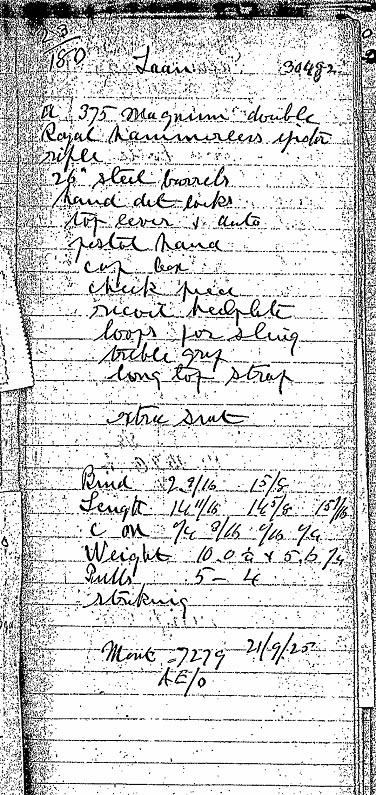 23
180
Laan 30482
A 375 magnum double
Royal hammerless ejector
rifle
26" steel barrels
hand det locks
top lever & auto
pistol hand
cap box
cheek piece
recoil heelplate
loops for sling
treble grip
long top strap
extra snat
Bend 2 3/16 15/8
Length 14 7/16 14 5/8 15 1/16
C on
Weight 10.0
Pulls 5 - 4
striking
Monk 7279 21/9/25